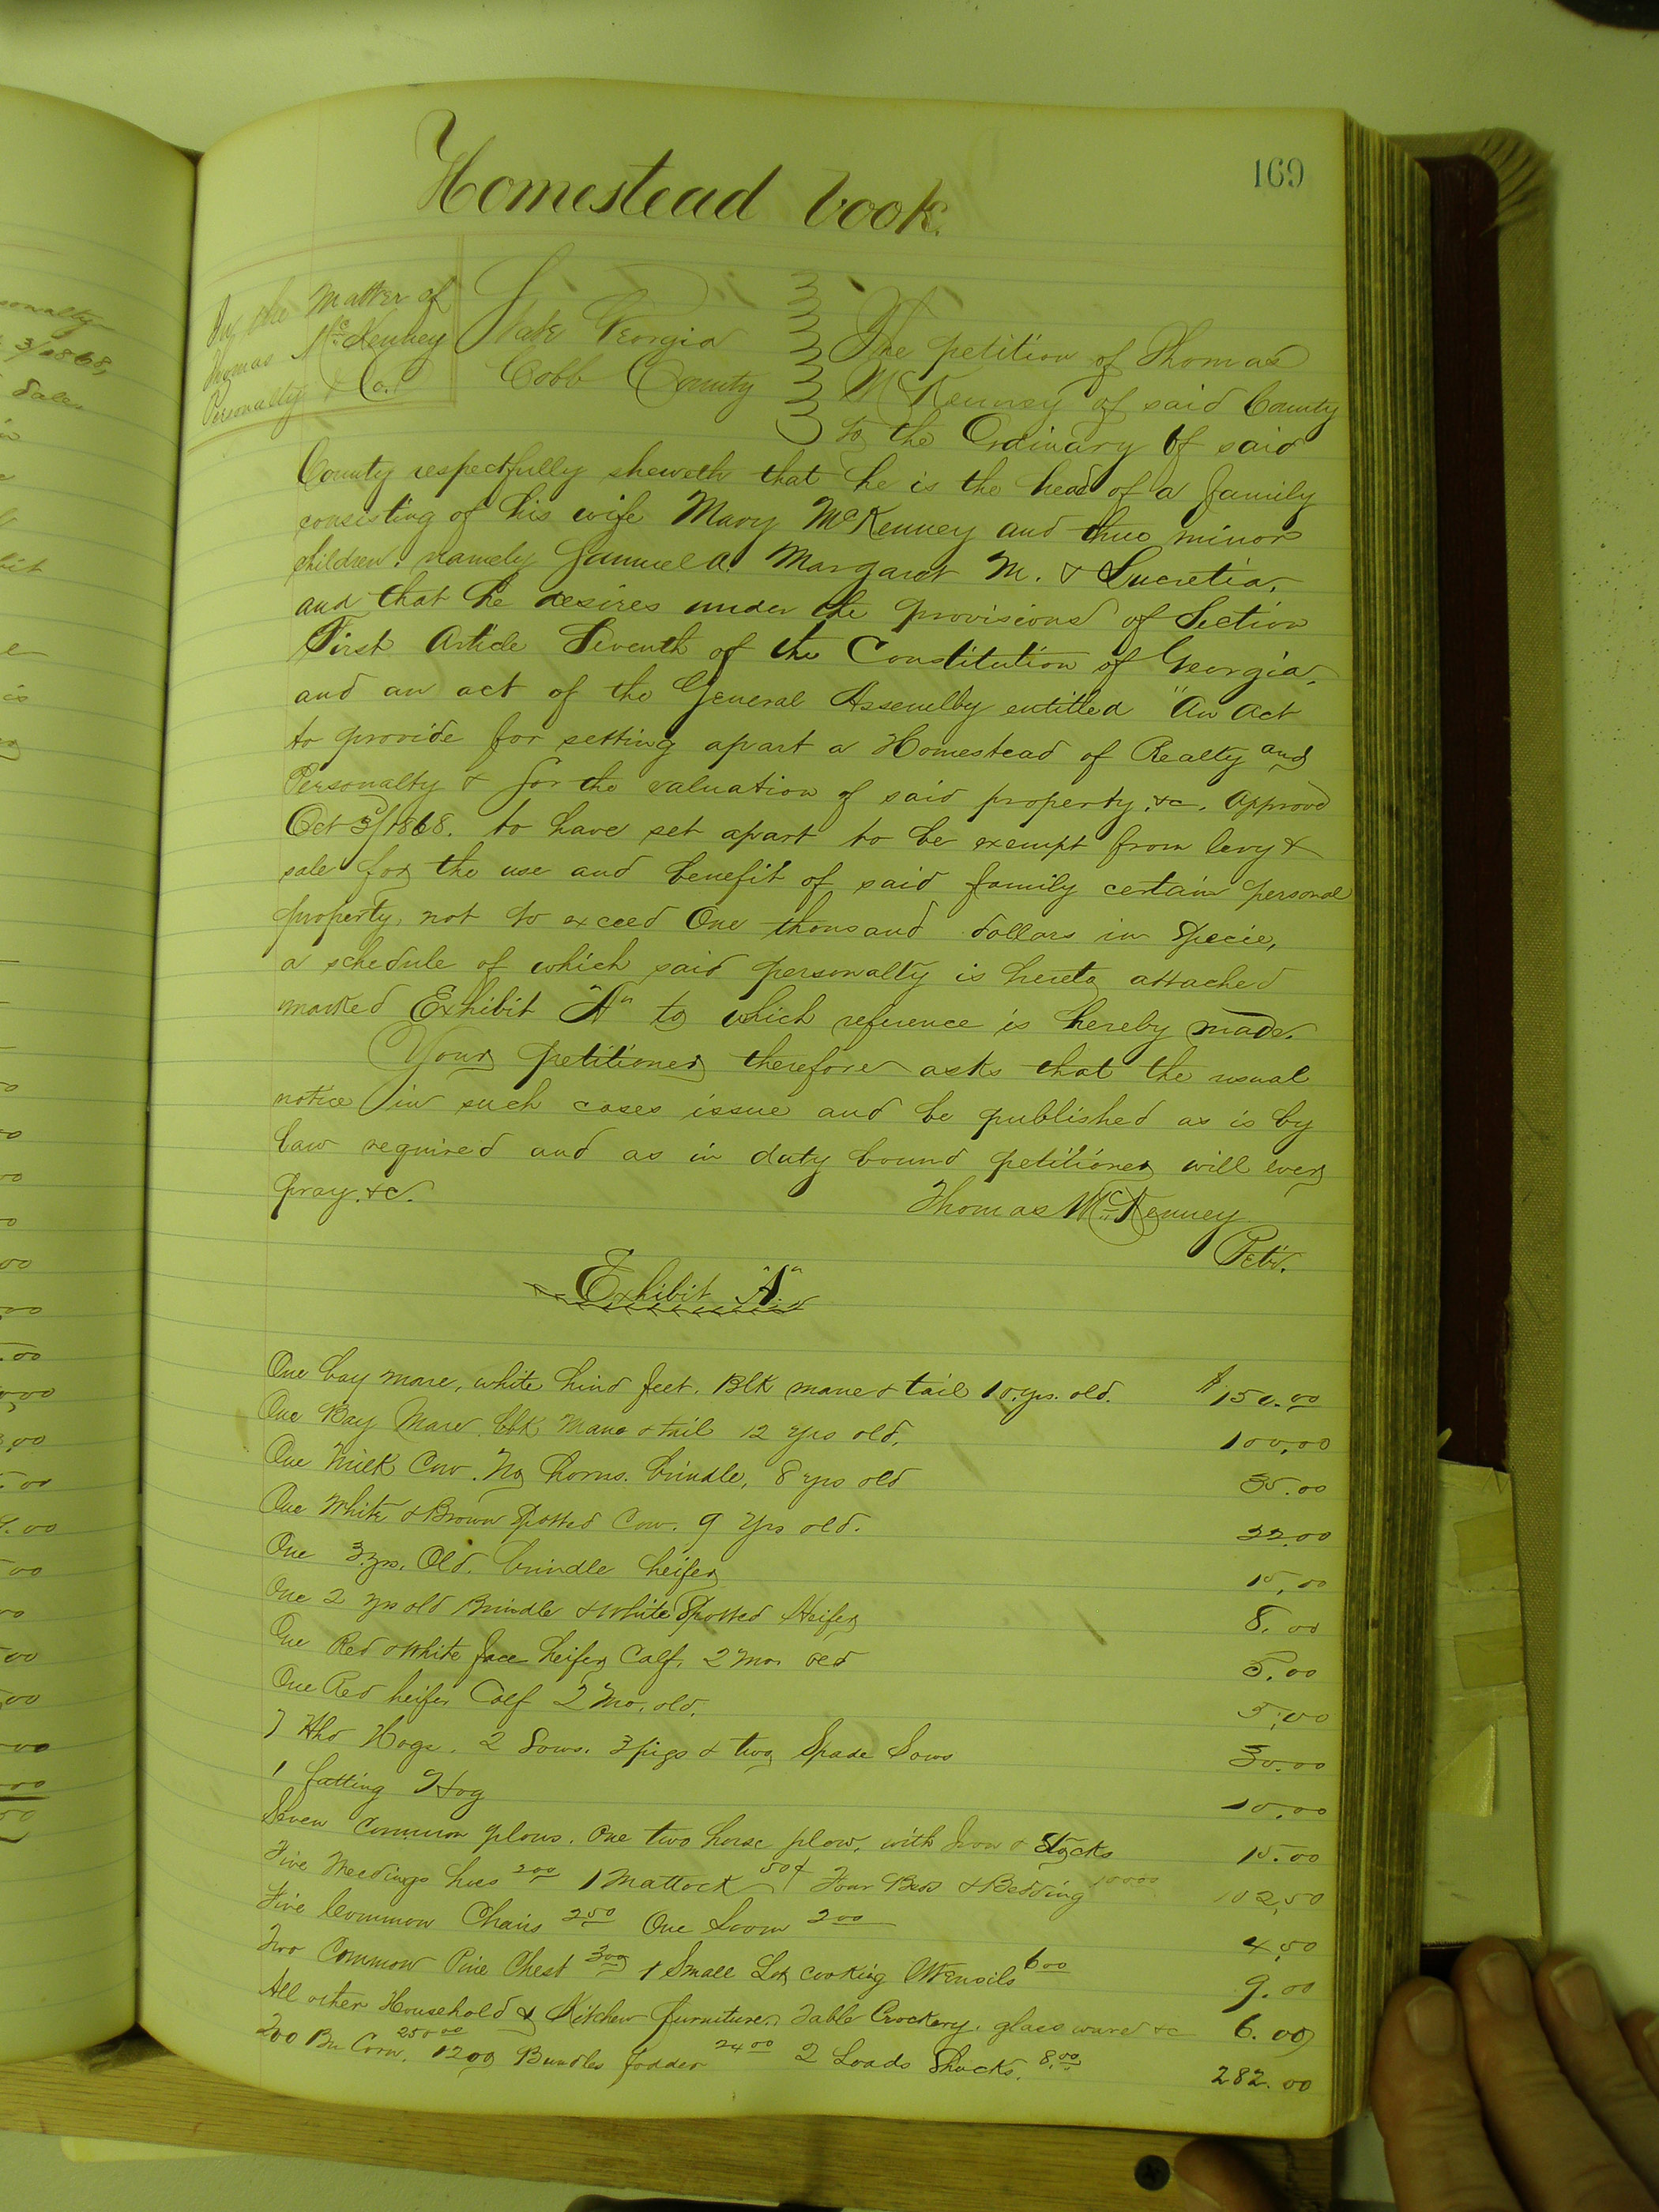 169
Homestead book.
In the Matter of
Thomas McKenney
Personalty & Co.
State Georgia
Cobb County
The petition of Thomas
McKenney of said County
to the Ordinary of said
County respectfully sheweth that he is the head of a family
consisting of his wife Mary McKenney and three minor
children. namely Samuel A. Margaret M. & Lucretia,
and that he desires under the provisions of Section
First Article Seventh of the Constitution of Georgia,
and an act of the General Assembly entitled "An Act
to provide for setting apart a Homestead of Realty and
Personalty & for the valuation of said property, &c. Approved
Oct 3d/1868. to have set apart to be exempt from levy &
sale for the use and benefit of said family certain personal
property, not to exceed One thousand dollars in Specie,
a schedule of which said personalty is hereto attached
marked Exhibit "A" to which reference is hereby made.
Your petitioner therefore asks that the usual
notice in such cases issue and be published as is by
law required and as in duty bound petitioner will ever
pray. &c.
Thomas McKenney
Petr.
Exhibit "A"
One bay mare, white hind feet. Blk mane & tail 10. yrs. old. $150.00
One Bay Mare. blk Mane & tail 12 yrs old, 100,00
One Milk Cow. No horns. brindle, 8 yrs old 35.00
One White & Brown Spotted Cow. 9 Yrs old. 22.00
One 3 yrs. Old. brindle heifer 15,00
One 2 yrs old Brindle & White Spotted Heifer 8.00
One Red & White face heifer Calf. 2 Mo. old 5.00
One Red heifer Calf 2 Mo. old. 5,00
7 Hd Hogs. 2 Sows. 3 pigs & two Spade Sows 30.00
1 fatting Hog 10.00
Seven Common plows. One two horse plow, with Iron & Stocks 15.00
Five Weedings hoes 2 00 1 Mattock 50¢ Four Beds & Bedding 100 00 102,50
Five Common Chairs 2 50 One Loom 2 00 4,50
Two Common Pine Chest 3 00 1 Small Lot cooking Utensils 6 00 9.00
All other Household & Kitchen furniture, Table Crockery, glass ware &c 6.00
200 Bu Corn, 250 00 1200 Bundles fodder 24 00 2 Loads Shucks. 8.00 282.00